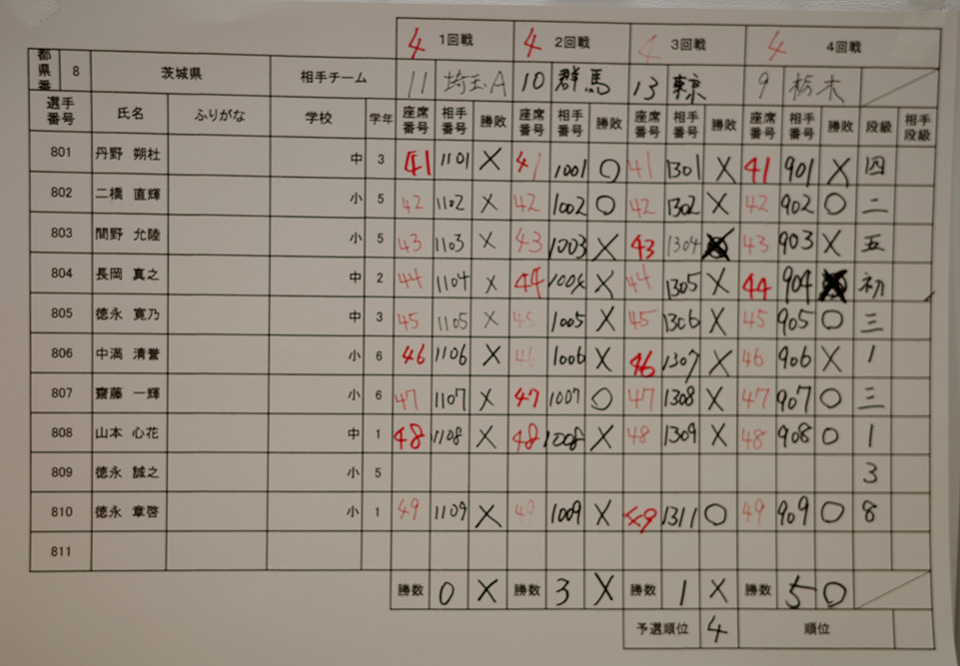 4 1回戦 4 2回戦 4 3回戦 4 4回戦
都県番 8 茨城県 相手チーム 11 埼玉A 10 群馬 13 東京 9 栃木
選手番号 氏名 ふりがな 学校 学年 座席番号 相手番号 勝敗 座席番号 相手番号 勝敗 座席番号 相手番号 勝敗 座席番号 相手番号 勝敗 段級 相手段級
801 丹野 朔社 中 3 41 1101 X 41 1001 O 41 1301 X 41 901 X 四
802 二橋 直輝 小 5 42 1102 X 42 1002 O 42 1302 X 42 902 O 二
803 間野 允陸 小 5 43 1103 X 43 1003 X 43 1304 43 903 X 五
804 長岡 真之 中 2 44 1104 X 44 1004 X 44 1305 X 44 904 初
805 徳永 寛乃 中 3 45 1105 X 45 1005 X 45 1306 X 45 905 O 三
806 中満 清誉 小 6 46 1106 X 46 1006 X 46 1307 X 46 906 X 1
807 齋藤 一輝 小 6 47 1107 X 47 1007 O 47 1308 X 47 907 O 三
808 山本 心花 中 1 48 1108 X 48 1008 X 48 1309 X 48 908 O 1
809 徳永 誠之 小 5 3
810 徳永 章啓 小 1 49 1109 X 49 1009 X 49 1311 O 49 909 O 8
811
勝数 0 X 勝数 3 X 勝数 1 X 勝数 5 O
予選順位 4 順位